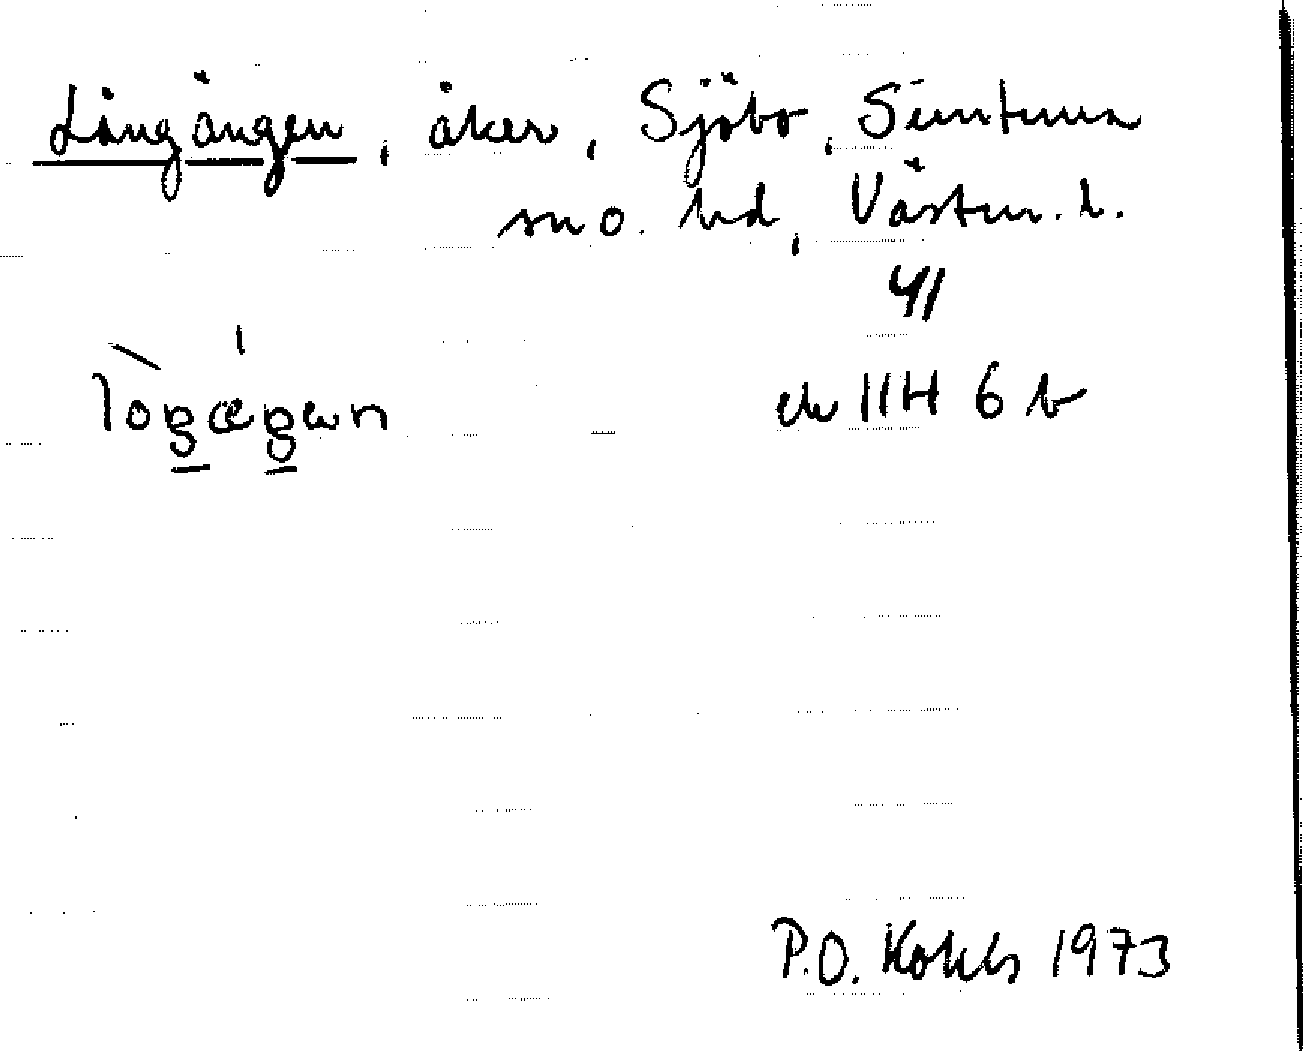 Långängen, åker, Sjöbo, Simtuna
sn o. hd, Västm. l.
41
ek 11H 6 b
P.O. 1973